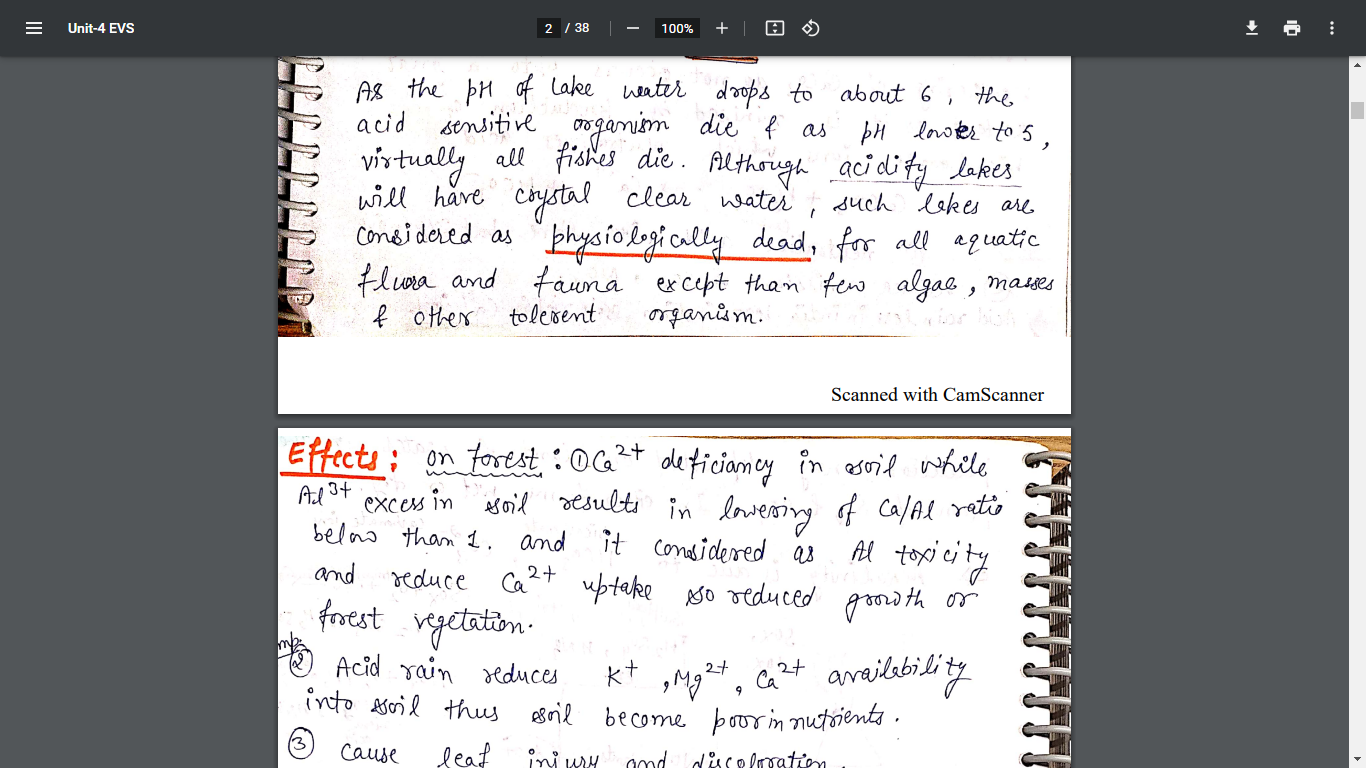 Unit-4 EVS
2 / 38
100%
As the pH of lake water drops to about 6, the
acid sensitive organism die & as pH lower to 5,
virtually all fishes die. Although acidify lakes
will have crystal clear water, such lakes are
considered as physiologically dead, for all aquatic
fluora and fauna except than few algae, masses
& other tolerent organism.
Scanned with CamScanner
Effects: on forest: ① Ca²⁺ deficiancy in soil while
Al³⁺ excess in soil results in lowering of Ca/Al ratio
below than 1. and it considered as Al toxicity
and reduce Ca²⁺ uptake so reduced growth or
forest vegetation.
imp.
② Acid rain reduces K⁺, Mg²⁺, Ca²⁺ availability
into soil thus soil become poor in nutrients.
③ cause leaf injury and discoloration.